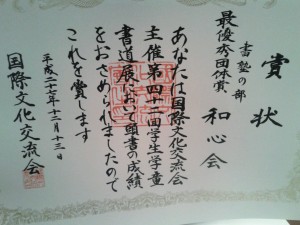 賞状
書塾の部
最優秀団体賞
和心会
あなたは国際文化交流会
主催第四十二回学生学童
書道展において頭書の成績
をおさめられましたので
これを賞します
平成二十七年十二月十三日
国際文化交流会